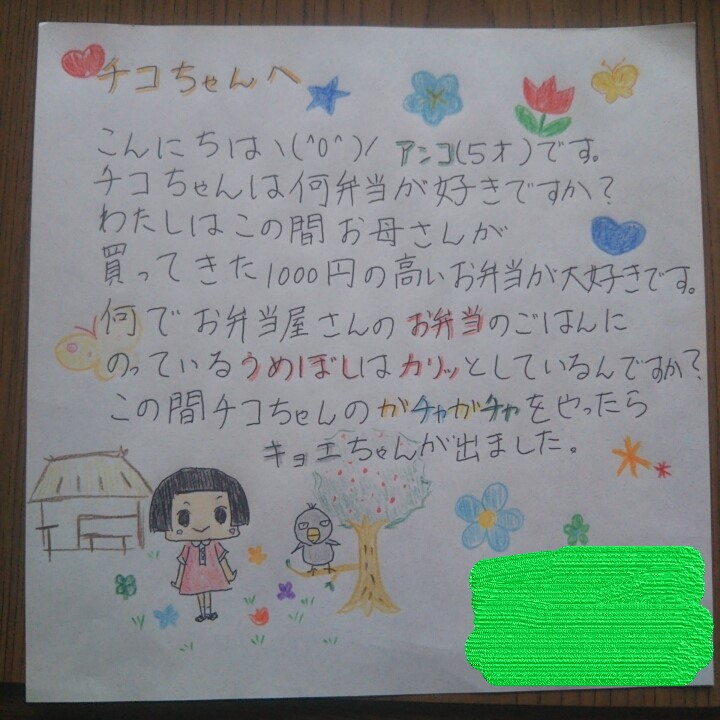 チコちゃんへ
こんにちは\(^0^)/ アンコ(5才)です。
チコちゃんは何弁当が好きですか?
わたしはこの間お母さんが
買ってきた1000円の高いお弁当が大好きです。
何でお弁当屋さんのお弁当のごはんに
のっているうめぼしはカリッとしているんですか?
この間チコちゃんのガチャガチャをやったら
キョエちゃんが出ました。